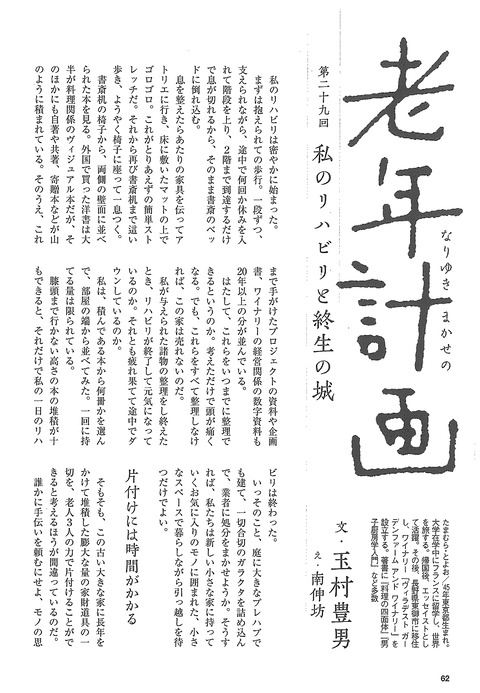 なりゆき まかせの
老年計画
第二十九回
私のリハビリと終生の城
文・玉村豊男
え・南伸坊
たまむら・とよお／'45年東京都生まれ。
大学在学中にフランスに留学し、世界
を旅する。帰国後、エッセイストとし
て活躍。その後、長野県東御市に移住
し、ワイナリー「ヴィラデスト ガー
デンファーム アンド ワイナリー」を
設立する。著書に『料理の四面体』『男
子厨房学入門』など多数
私のリハビリは密やかに始まった。
まずは抱えられての歩行。一段ずつ、
支えられながら、途中で何回か休みを入
れて階段を上り、2階まで到達するだけ
で息が切れるから、そのまま書斎のベッ
ドに倒れ込む。
息を整えたらあたりの家具を伝ってア
トリエに行き、床に敷いたマットの上で
ゴロゴロ。これがとりあえずの簡単スト
レッチだ。それから再び書斎机まで這い
歩き、ようやく椅子に座って一息つく。
書斎机の椅子から、両側の壁面に並べ
られた本を見る。外国で買った洋書は大
半が料理関係のヴィジュアル本だが、そ
のほかにも自著や共著、寄贈本などが山
のように積まれている。そのうえ、これ
まで手がけたプロジェクトの資料や企画
書、ワイナリーの経営関係の数字資料も
20年以上の分が並んでいる。
はたして、これらをいつまでに整理で
きるというのか。考えただけで頭が痛く
なる。でも、これらをすべて整理しなけ
れば、この家は売れないのだ。
私が与えられた諸物の整理をし終えた
とき、リハビリが終了して元気になって
いるのか。それとも疲れ果てて途中でダ
ウンしているのか。
私は、積んである本から何冊かを選ん
で、部屋の端から並べてみた。一回に持
てる量は限られている。
膝頭まで行かない高さの本の堆積が十
もできると、それだけで私の一日のリハ
ビリは終わった。
いっそのこと、庭に大きなプレハブで
も建て、一切合切のガラクタを詰め込ん
で、業者に処分をまかせようか。そうす
れば、私たちは新しい小さな家に持って
いくお気に入りのモノに囲まれた、小さ
なスペースで暮らしながら引っ越しを待
つだけでよい。
片付けには時間がかかる
そもそも、この古い大きな家に長年を
かけて堆積した膨大な量の家財道具の一
切を、老人3人の力で片付けることがで
きると考えるほうが間違っているのだ。
誰かに手伝いを頼むにせよ、モノの思
62